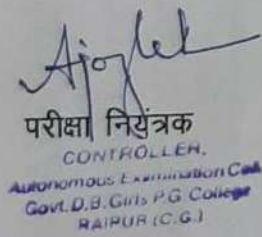 परीक्षा नियंत्रक
CONTROLLER,
Autonomous Examination Cell
Govt. D.B. Girls P.G. College
RAIPUR (C.G.)